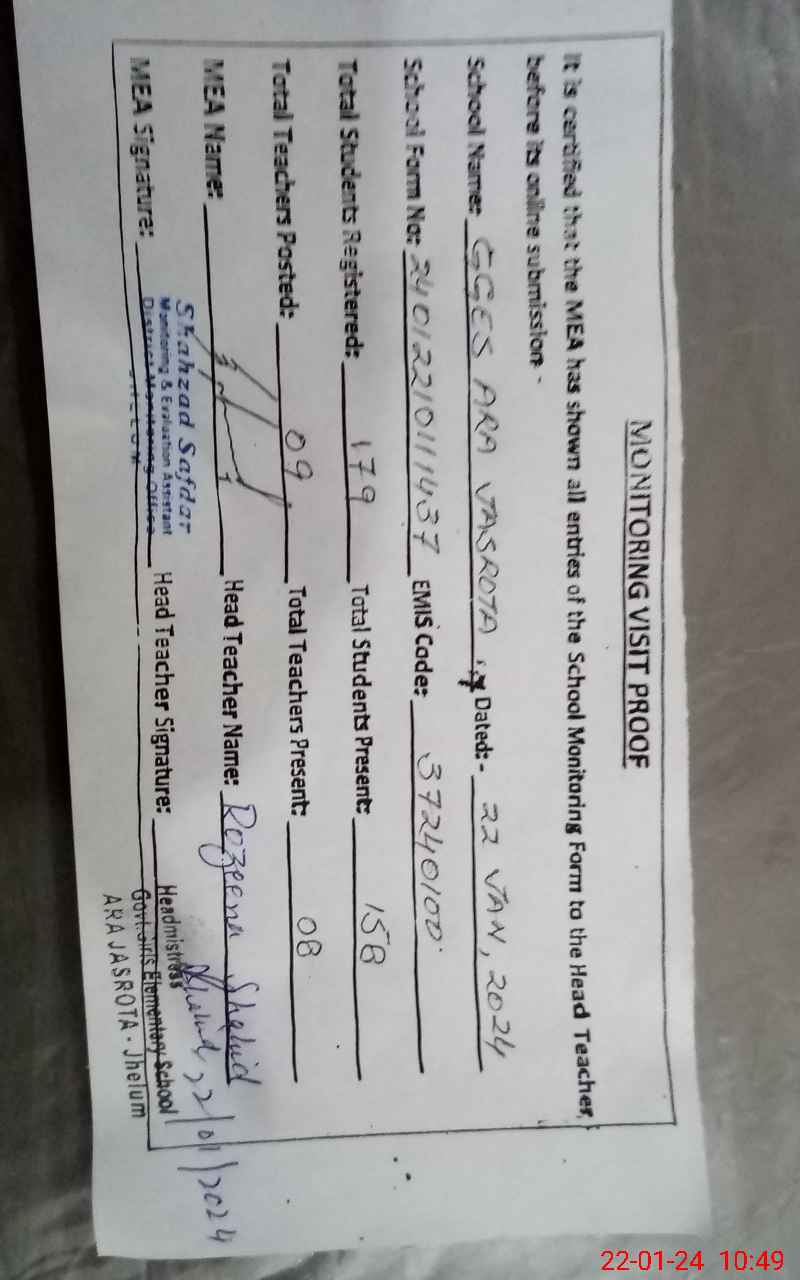 MONITORING VISIT PROOF
It is certified that the MEA has shown all entries of the School Monitoring Form to the Head Teacher,
before its online submission -
School Name: GGES ARA JASROTA Dated:- 22 JAN, 2024
School Form No: 2401221011437 EMIS Code: 37240100
Total Students Registered: 179 Total Students Present: 158
Total Teachers Posted: 09 Total Teachers Present: 08
MEA Name: Head Teacher Name: Rozeena Shahid
Shahzad Safdar
Monitoring & Evaluation Assistant
District Monitoring Office
JHELUM
MEA Signature: Head Teacher Signature:
22/01/2024
Headmistress
Govt. Girls Elementary School
ARA JASROTA - Jhelum
22-01-24 10:49